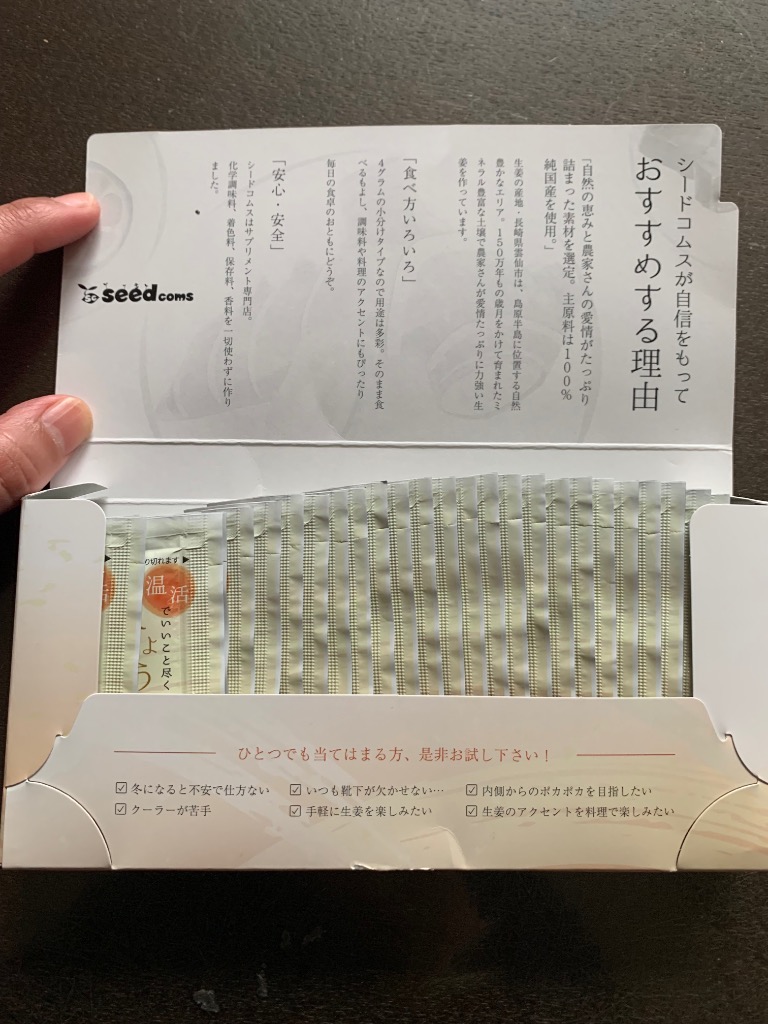 シードコムスが自信をもって
おすすめする理由
「自然の恵みと農家さんの愛情がたっぷり
詰まった素材を選定。主原料は100%
純国産を使用。」
生姜の産地・長崎県雲仙市は、島原半島に位置する自然
豊かなエリア。150万年もの歳月をかけて育まれたミ
ネラル豊富な土壌で農家さんが愛情たっぷりに力強い生
姜を作っています。
「食べ方いろいろ」
4グラムの小分けタイプなので用途は多彩。そのまま食
べるもよし、調味料や料理のアクセントにもぴったり
毎日の食卓のおともにどうぞ。
「安心・安全」
シードコムスはサプリメント専門店。
化学調味料、着色料、保存料、香料を一切使わずに作り
ました。
seed coms
り切れます
温活
でいいこと尽く
ょう
ひとつでも当てはまる方、是非お試し下さい！
☑ 冬になると不安で仕方ない
☑ いつも靴下が欠かせない…
☑ 内側からのポカポカを目指したい
☑ クーラーが苦手
☑ 手軽に生姜を楽しみたい
☑ 生姜のアクセントを料理で楽しみたい